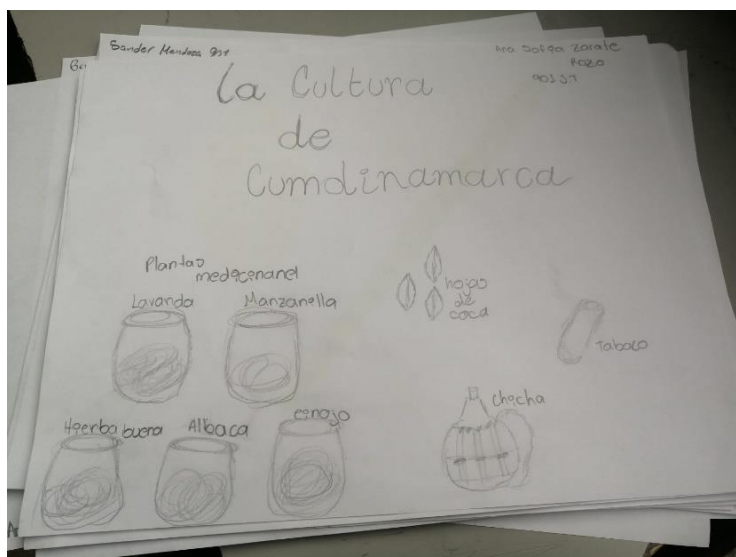 Sander Mendoza 901
Ana Sofia Zarate
Rozo
La Cultura
de
Cumdinamarca
Plantas
medicenanel
Lavanda
Manzanella
hojas
de
coca
Tabaco
Hierba buena
Albaca
cinojo
chicha